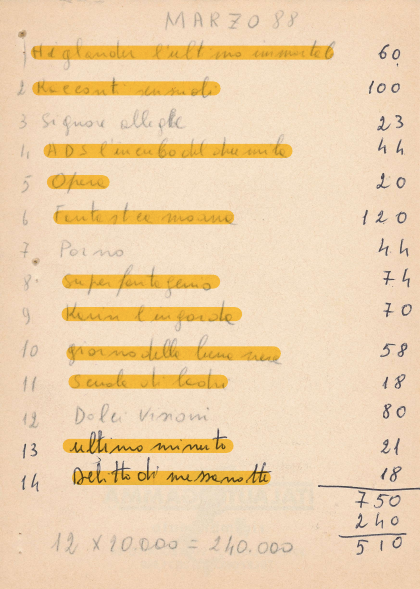 MARZO 88
1 Higlander l'ultimo immortale 60
2 Racconti sensuali 100
3 Signore allegre 23
4 ADS l'incubo del duemila 44
5 Opera 20
6 Fantastica moana 120
7 Porno 44
8 Superfantagenio 74
9 l'ingorda 70
10 giorno della luna nera 58
11 Scuola di ladri 18
12 Dolci Visioni 80
13 ultimo minuto 21
14 Delitto di mezzanotte 18
750
240
12 X 20.000 = 240.000 510